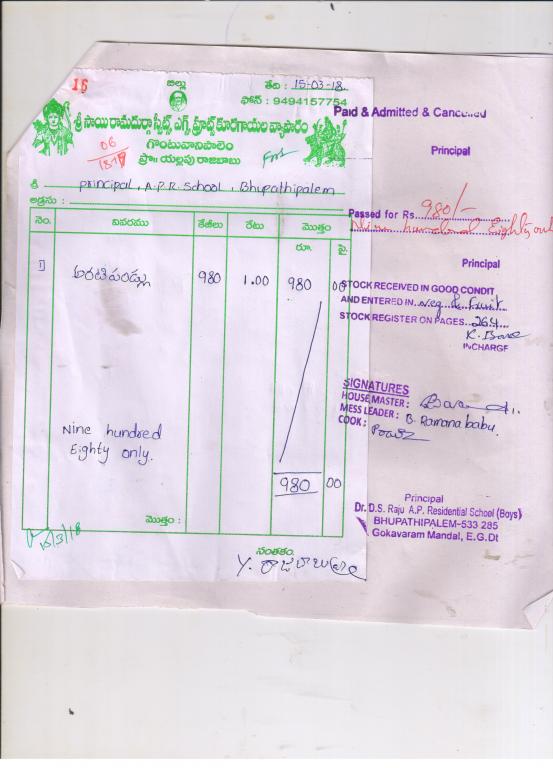 15
బిల్లు
తేది : 15-03-18
ఫోన్ : 9494157754
శ్రీ సాయి రామదుర్గా స్వీట్స్ ఎగ్స్ ఫ్రూట్స్ కూరగాయల వ్యాపారం
గొంటువానిపాలెం
ప్రొ॥ యల్లపు రాజబాబు
06
శ్రీ principal, A.P.R. School, Bhupathipalem
అడ్రసు :
నెం. వివరము కేజీలు రేటు మొత్తం
రూ. పై.
1 అరటిపండ్లు 980 1.00 980 00
Nine hundred
Eighty only.
980 00
మొత్తం :
15/3/18
సంతకం
Y. రాజబాబు
Paid & Admitted & Cancelled
Principal
Passed for Rs. 980/-
Nine hundred Eighty only
Principal
STOCK RECEIVED IN GOOD CONDIT
AND ENTERED IN Veg & Fruit
STOCK REGISTER ON PAGES 264
INCHARGE
SIGNATURES
HOUSE MASTER :
MESS LEADER : B. Ramana babu.
COOK :
Principal
Dr. D.S. Raju A.P. Residential School (Boys)
BHUPATHIPALEM-533 285
Gokavaram Mandal, E.G.Dt